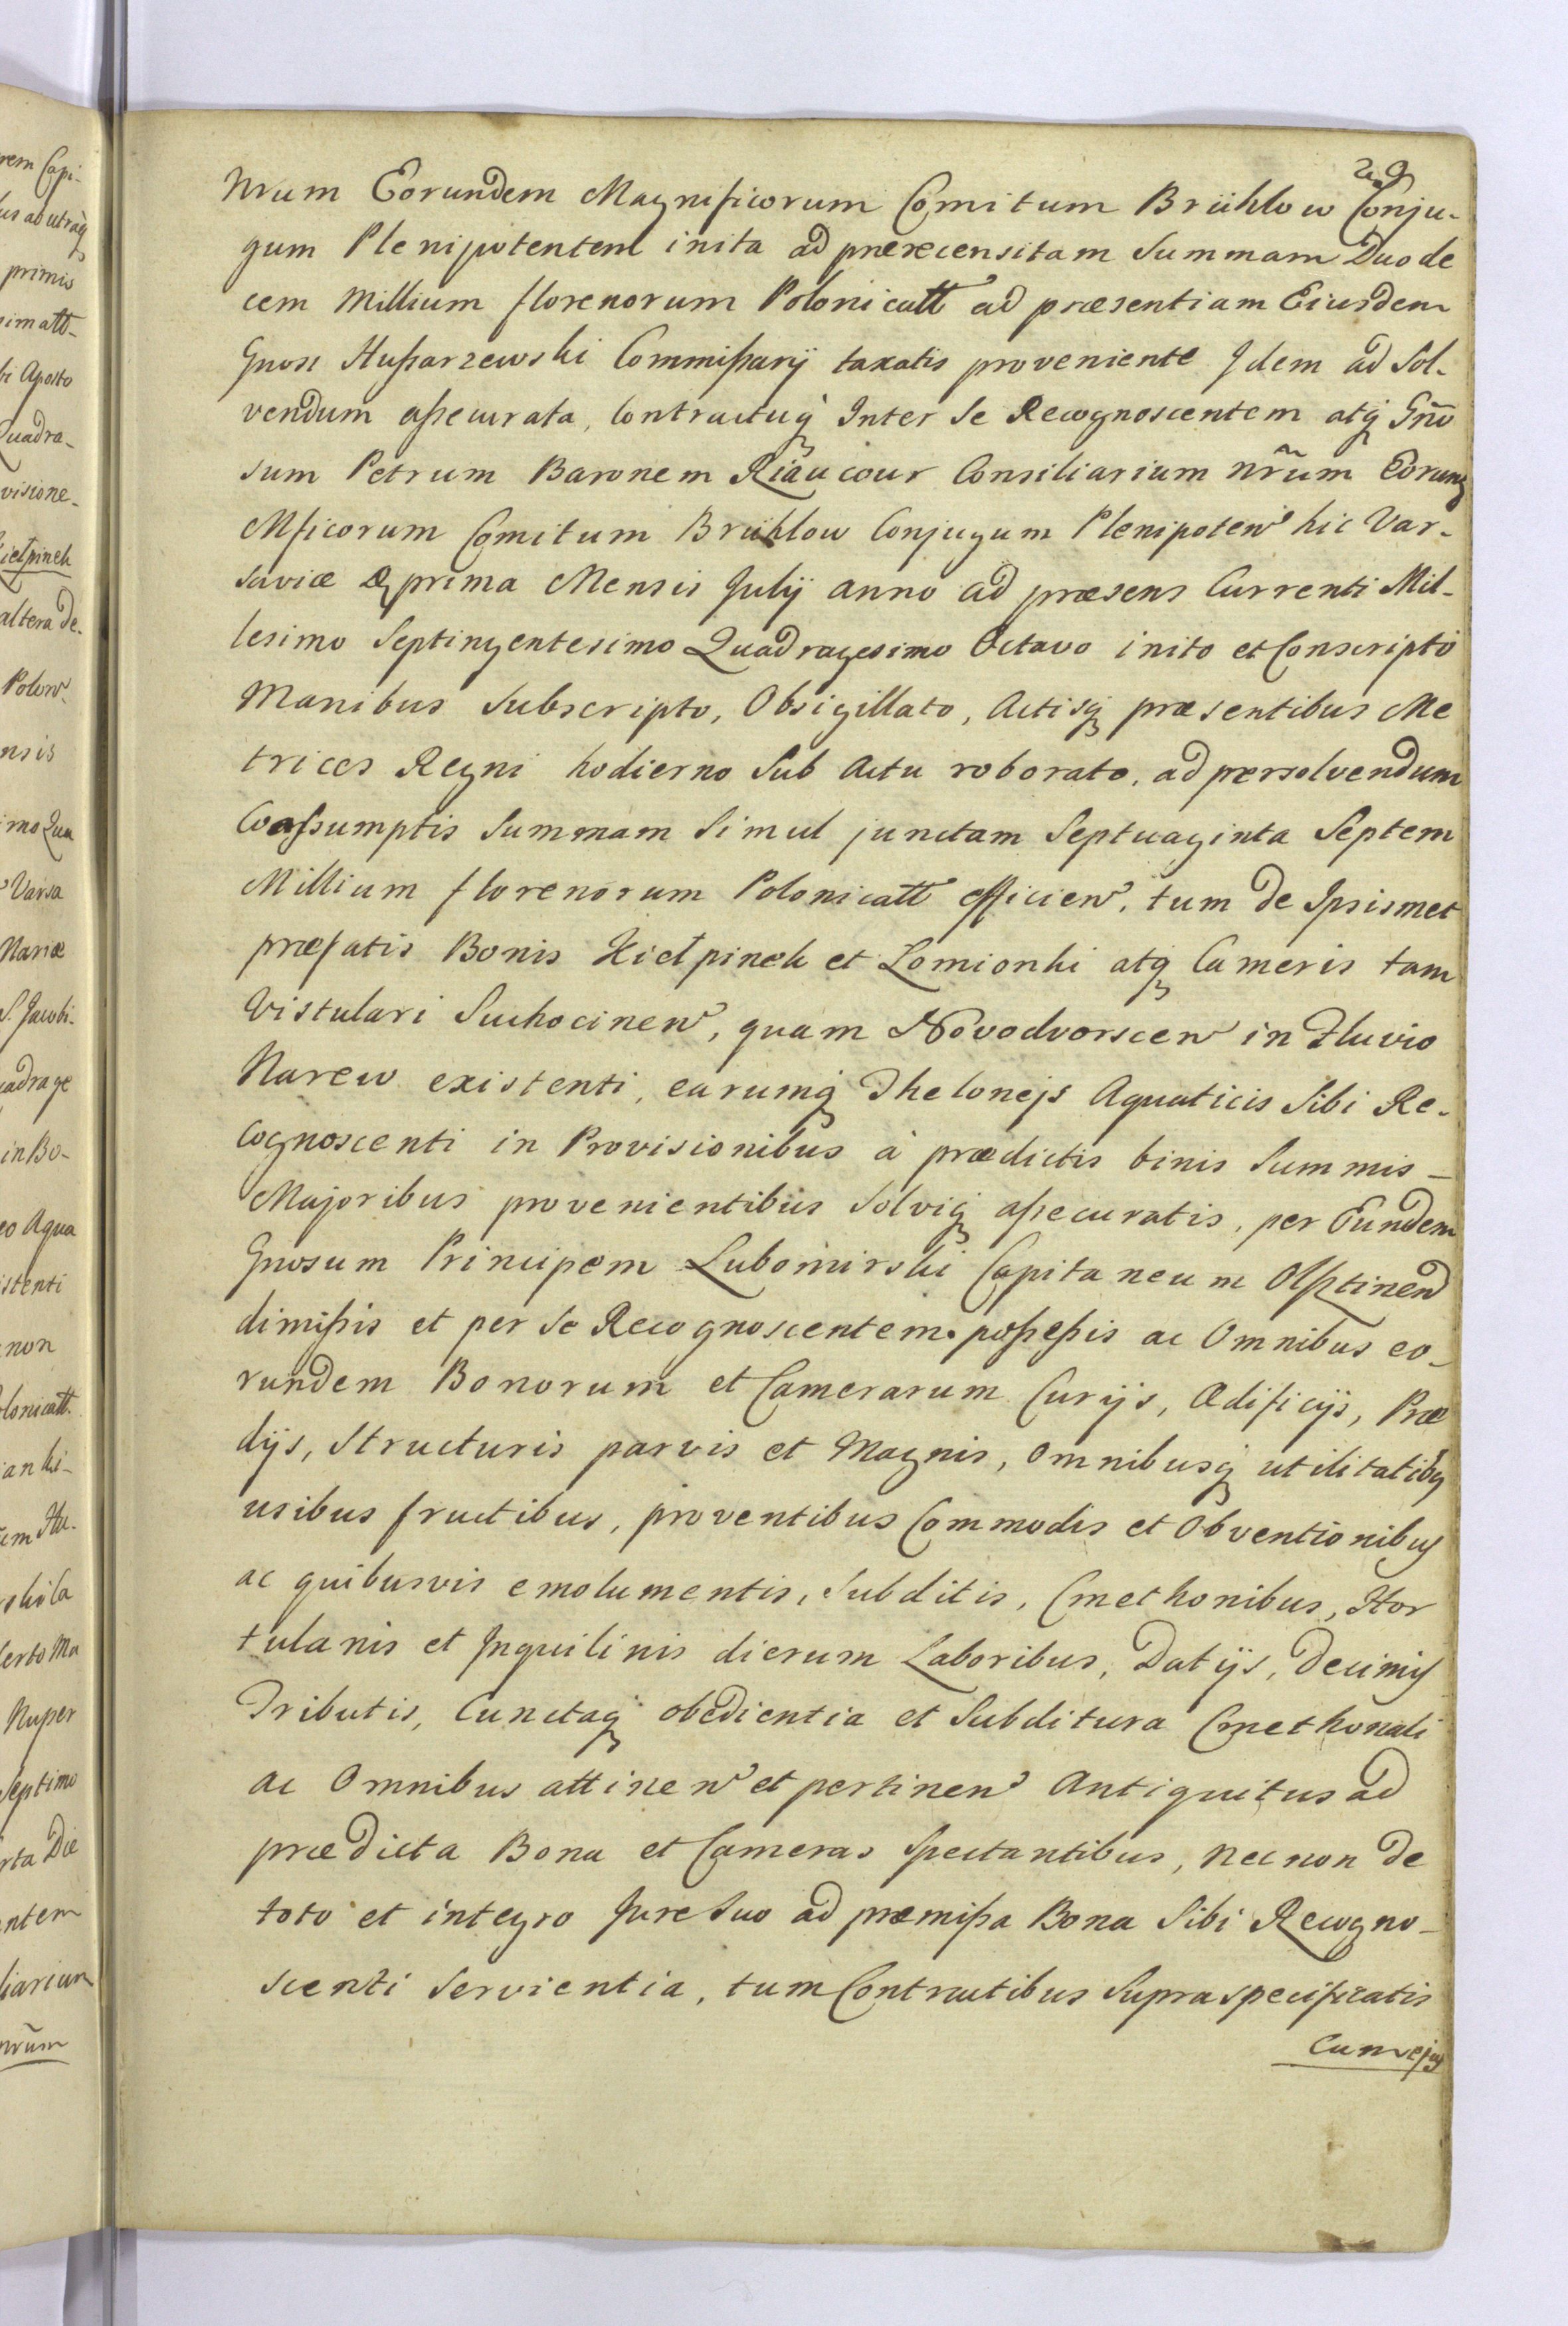 nrum Eorundem Magnificorum Comitum Brühlow Conju-
gum Plenipotentem inita ad præcensitam Summam Duode
cem Millium florenorum Polonicatt ad præsentiam Eiusdem
Gnosi Hußarzewski Commißarij taxatis proveniente Idem ad Sol-
vendum aßecurata, Contractuq́ Inter Se Recognoscentem atq́ Gño
sum Petrum Baronem Riaucour Consiliarium nr̃um Eorunq
Mficorum Comitum Brühlow Conjugum Plenipoten̉ hic Var-
saviæ prima Mensis Julij anno ad præsens Currenti Mil-
lesimo Septingentesimo Quadragesimo Octavo inito et Conscripto
Manibus Subscripto, Obsigillato, Actisq́ præsentibus Me
trices Regni hodierno Sub Actu roborato, ad persolvendum
Coassumptis Summam Simul junctam Septuaginta Septem
Millium florenorum Polonicatt efficien̉, tum de Ipsismet
præfatis Bonis Kiełpinek et Lomionki atq́ Cameris tam
Vistulari Suchocinen̉, quam Novodvorscen̉ in Fluvio
Narew existenti, earumq́ Thelonejs Aquaticis Sibi Re-
cognoscenti in Provisionibus à prædictis binis Summis-
Majoribus provenientibus Solviq́ aßecuratis, per Eundem
Gnosum Principem Lubomirski Capitaneum Olsztinen̉
dimißis et per Se Recognoscentem poßeßis ac Omnibus eo-
rundem Bonorum et Camerarum Curijs, Ædificijs, Præ
dijs, Structuris parvis et Magnis, Omnibusq́ utilitatibq
usibus fructibus, proventibus Commodis et Obventionibus
ac quibusvis emolumentis, Subditis, Cmethonibus, Hor
tulanis et Inquilinis dierum Laboribus, Datijs, Decimis
Tributis, Cunctaq́ obedientia et Subditura Cmethonali
ac Omnibus attinen̉ et pertinen̉ Antiquitus ad
prædicta Bona et Cameras Spectantibus, nec non de
toto et integro Jure Suo ad præmißa Bona Sibi Recogno-
scenti Servientia, tum Contractibus Supraspecificatis
Cum ejus